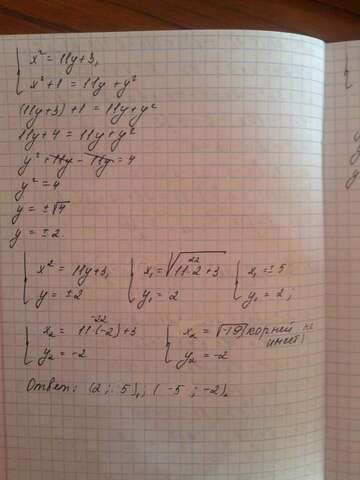 x² = 11y+3,
x²+1 = 11y+y²
(11y+3)+1 = 11y+y²
11y+4 = 11y+y²
y²+11y-11y=4
y²=4
y=±√4
y=±2.
x² = 11y+3, x₁=√11·2+3 x₁=±5
22
y=±2 y₁=2 y₁=2,
-22
x₂ = 11·(-2)+3 x₂=√-19(корней не имеет)
y₂=-2 y₂=-2
Ответ: (2; 5),; (-5; -2).